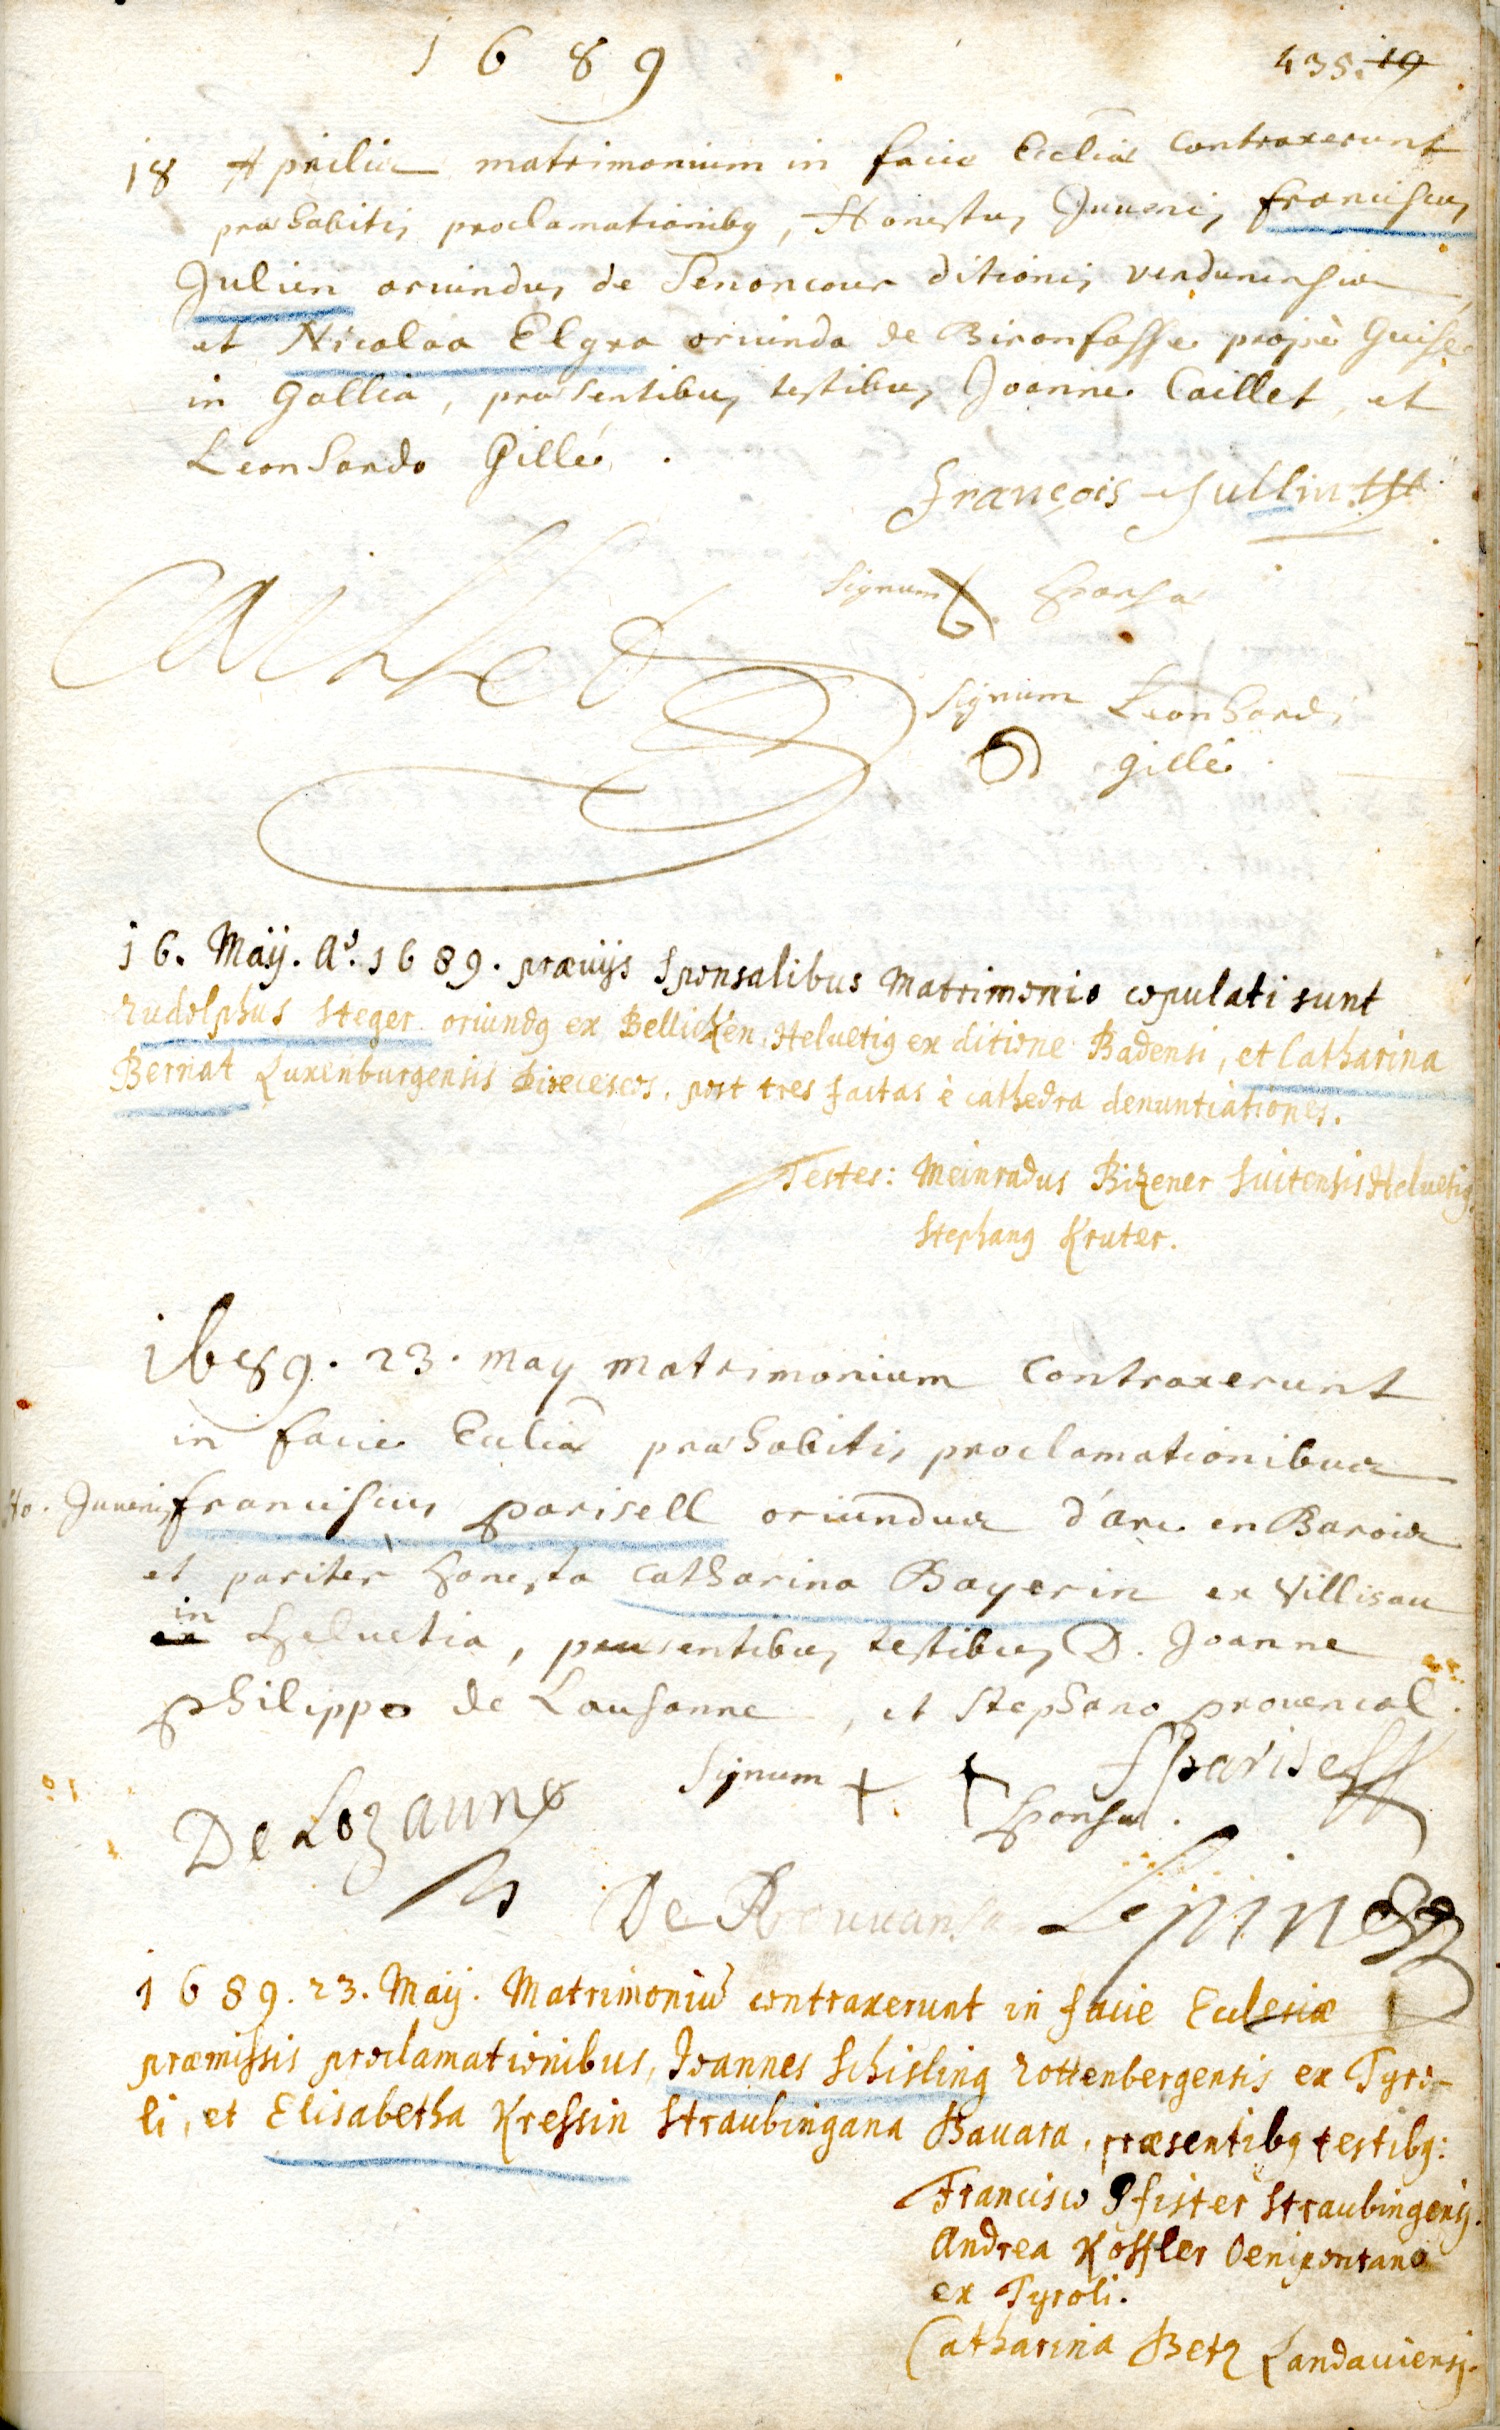 1689
435. 19
18 Aprilis matrimonium in facie Eccliæ Contraxerunt
præhabitis proclamationibus, Honestus Juvenis franciscus
Julien oriundus de Senoncour ditionis verdunensis
et Nicolaa Elgra oriunda de Bironfosse propè Guise
in Gallia, præsentibus testibus Joanne Caillet, et
Leonhardo Gillé.
françois Jullin
Caillet
Signum Sponsæ
Signum Leonhardi
gillé
16. Maÿ. Aº. 1689. præuijs Sponsalibus Matrimonio copulati sunt
Rudolphus Steger oriundus ex Bellicken Heluetius ex ditione Badensi, et Catharina
Bernat Luxenburgensis Dioeceseos, post tres factas è cathedra denuntiationes.
Testes: Meinradus Bizener Suitensis Heluetius
Stephanus Kruter.
1689. 23. may matrimonium Contraxerunt
in facie Eccliæ præhabitis proclamationibus
Ho. Juvenis franciscus parisell oriundus d'arc en Barois
et pariter honesta Catharina Bayerin ex Villisau
in
ex helvetia, præsentibus testibus D. Joanne
philippo de Lausanne, et Stephano provencal.
Signum + + Sponsæ.
fparisell
De Lozanne
De
Lepine
1689. 23. Maÿ. Matrimoniū contraxerunt in facie Ecclesiæ
præmissis proclamationibus, Joannes Schisling Rottenbergensis ex Tyro-
li, et Elisabetha Kressin Straubingana Bauara, præsentibus testibus:
Francisco Pfister Straubingensi.
Andrea Köffler Oenipontano
ex Tyroli.
Catharina Betz Landauiensi.